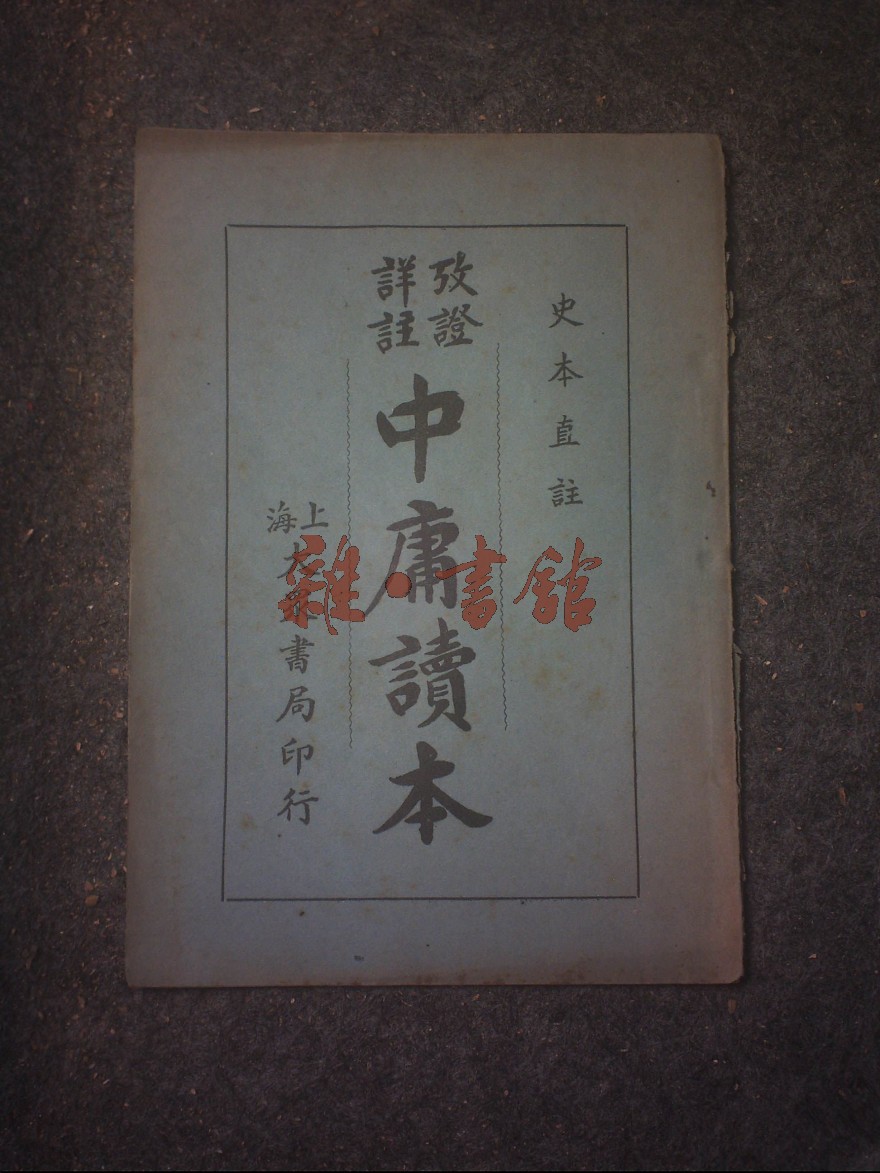 史本直註
攷證
詳註
中庸讀本
上海
大眾書局印行
雜·書館